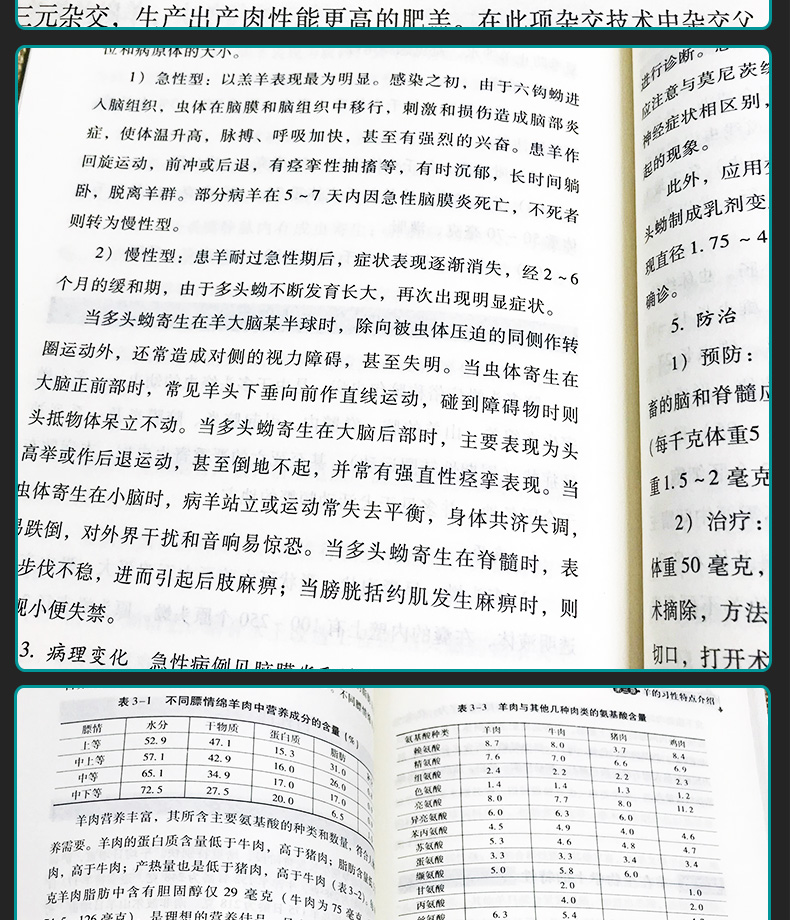 三元杂交，生产出产肉性能更高的肥羔。在此项杂交技术中杂交父
位和病原体的大小。
1）急性型：以羔羊表现最为明显。感染之初，由于六钩蚴进
入脑组织，虫体在脑膜和脑组织中移行，刺激和损伤造成脑部炎
症，使体温升高，脉搏、呼吸加快，甚至有强烈的兴奋。患羊作
回旋运动，前冲或后退，有痉挛性抽搐等，有时沉郁，长时间躺
卧，脱离羊群。部分病羊在5～7天内因急性脑膜炎死亡，不死者
则转为慢性型。
2）慢性型：患羊耐过急性期后，症状表现逐渐消失，经2～6
个月的缓和期，由于多头蚴不断发育长大，再次出现明显症状。
当多头蚴寄生在羊大脑某半球时，除向被虫体压迫的同侧作转
圈运动外，还常造成对侧的视力障碍，甚至失明。当虫体寄生在
大脑正前部时，常见羊头下垂向前作直线运动，碰到障碍物时则
头抵物体呆立不动。当多头蚴寄生在大脑后部时，主要表现为头
高举或作后退运动，甚至倒地不起，并常有强直性痉挛表现。当
虫体寄生在小脑时，病羊站立或运动常失去平衡，身体共济失调，
易跌倒，对外界干扰和音响易惊恐。当多头蚴寄生在脊髓时，表
步伐不稳，进而引起后肢麻痹；当膀胱括约肌发生麻痹时，则
现小便失禁。
3. 病理变化 急性病例见脑膜炎和
进行诊断。
应注意与莫尼茨绦
神经症状相区别，
起的现象。
此外，应用变
头蚴制成乳剂变
现直径1.75～4
确诊。
5. 防治
1）预防：
畜的脑和脊髓应
(每千克体重5
重1.5～2毫克
2）治疗：
体重50毫克，
术摘除，方法
切口，打开术
表3-1 不同膘情绵羊肉中营养成分的含量（%）
膘情 水分 干物质 蛋白质 脂肪
上等 52.9 47.1 15.3 31.0
中上等 57.1 42.9 16.0 26.0
中等 65.1 34.9 17.0 17.0
中下等 72.5 27.5 20.0 6.5
羊肉营养丰富，其所含主要氨基酸的种类和数量，符合人
养需要。羊肉的蛋白质含量低于牛肉，高于猪肉；脂肪含量低
肉，高于牛肉；产热量也是低于猪肉，高于牛肉（表3-2）。
克羊肉脂肪中含有胆固醇仅29毫克（牛肉为75毫克
126毫克），是理想的营养佳品
羊的习性特点介绍
表3-3 羊肉与其他几种肉类的氨基酸含量
氨基酸种类 羊肉 牛肉 猪肉 鸡肉
赖氨酸 8.7 8.0 3.7 8.4
精氨酸 7.6 7.0 6.6 6.9
组氨酸 2.4 2.2 2.2 2.3
色氨酸 1.4 1.4 1.3 1.2
亮氨酸 8.0 7.7 8.0 11.2
异亮氨酸 6.0 6.3 6.0
苯丙氨酸 4.5 4.9 4.0 4.6
苏氨酸 5.3 4.6 4.8 4.7
蛋氨酸 3.3 3.3 3.4 3.4
缬氨酸 5.0 5.8 6.0
甘氨酸 2.0 1.0
丙氨酸 4.0 2.0
6.3 5.4